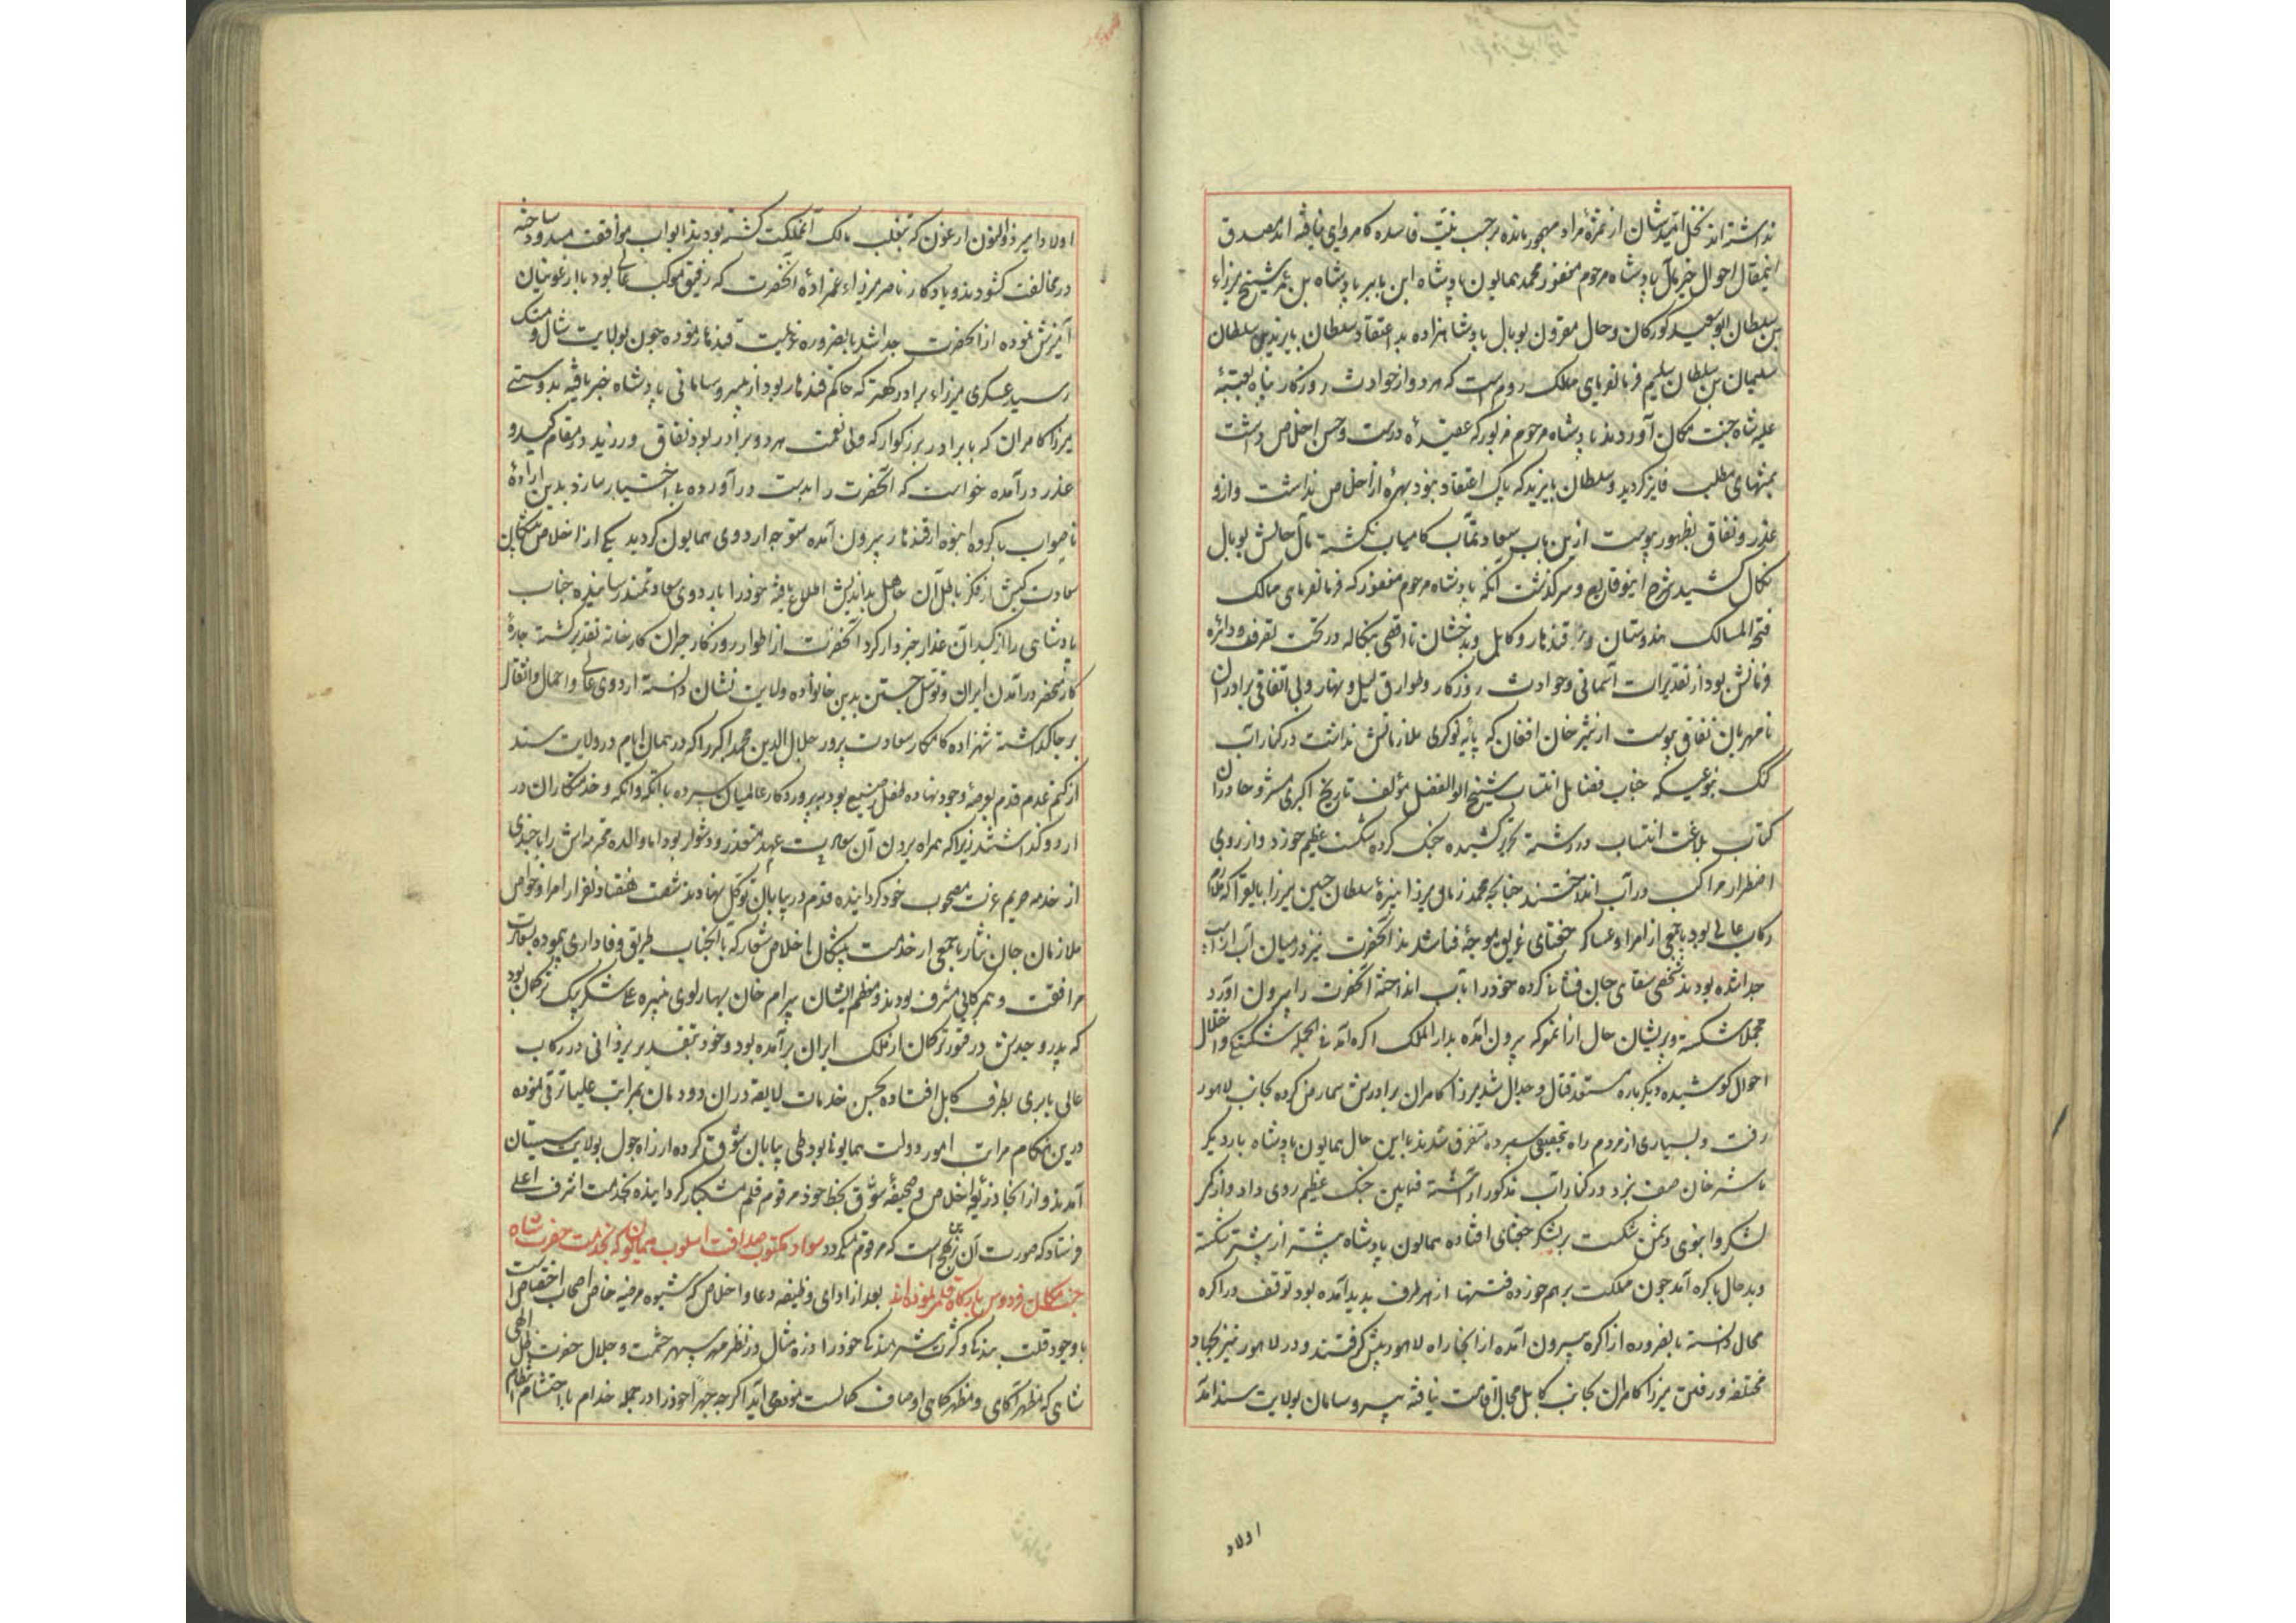 نداشته‌اند نخل امیدشان از ثمرهٔ مراد مهجور مانده برحسب نیت فاسده کامروایی نیافته‌اند مصدق
اینمقال احوال خیرمآل پادشاه مرحوم مغفور محمد همایون پادشاه ابن بابر پادشاه بن عمر شیخ میرزاء
بن سلطان ابوسعید کورکان و حال مقرون بوبال پادشاهزاده بد اعتقاد سلطان بایزید بن سلطان
سلیمان بن سلطان سلیم فرمانفرمای ممالک روم است که هر دو از حوادث روزکار پناه بعتبهٔ
علیه شاه جنت مکان آوردند پادشاه مرحوم مزبور که عقیدهٔ درست و حسن اخلاص داشت
بمنتهای مطلب فایز کردید و سلطان بایزید که پاک اعتقاد نبود بهرهٔ از اخلاص نداشت و ازو
غدر و نفاق بظهور پیوست ازین باب سعادتمآب کامیاب نکشته مآل حالش بوبال
نکال کشید شرح اینوقایع و سرکذشت آنکه پادشاه مرحوم مغفور که فرمانفرمای ممالک
فتحة الممالک هندوستان و قندهار و کابل و بدخشان تا اقصی بنکاله در تحت تصرف و دائره
فرمانش بود از تقدیرات آسمانی و حوادث روزکار و طوارق لیل و نهار و بی اتفاقی برادران
نامهربان نفاق پیوست از شیر خان افغان که پایه نوکری ملازمانش نداشت در کنار آب
کنک بنوعی که جناب فضایل انتساب شیخ ابوالفضل مؤلف تاریخ اکبری مشروحا در آن
کتاب بلاغت انتساب در رشته تحریر کشیده جنک کرده شکست عظیم خورد و از روی
اضطرار مراکب در آب انداختند چنانچه محمد زمان میرزا نبیرهٔ سلطان حسین میرزا بایقرا که ملازم
رکاب عالی بود با جمعی از امرا و عساکر جغتای غریق موجهٔ فنا شدند آنحضرت نیز در میان آب از اسب
جدا شده بودند شخصی سقای جان فشانی کرده خود را بآب انداخته آنحضرت را بیرون آورد
مجملا شکسته و پریشان حال از آنمعرکه بیرون آمده بدار الملک اکره آمد فی الجمله بشکستکی و اختلال
احوال کوشیده دیکر باره مستعد قتال و جدال شد میرزا کامران برادرش تمارض کرده بجانب لاهور
رفت و بسیاری از مردم راه بیحقیقتی سپرده متفرق شدند با این حال همایون پادشاه بار دیکر
با شیر خان صف نبرد در کنار آب مذکور آراسته فیمابین جنک عظیم روی داد و از کثر
لشکر و انبوی دشمن شکست بر لشکر جغتای افتاده همایون پادشاه بیشتر از پیشتر شکسته
و بدحال باکره آمد چون مملکت برهم خورده فتنها از هر طرف پدید آمده بود توقف در اکره
محال دانسته بالضروره از اکره بیرون آمده از آنجا راه لاهور پیش کرفتند و در لاهور نیز بجهاد
مختلفه و رفتن میرزا کامران بجانب کابل مجال اقامت نیافته بی سر و سامان بولایت سند آمد
اولاد
اولاد امیر ذوالنون ارغون که بتغلب مالک آنمملکت کشته بودند ابواب موافقت مسدود ساخته
در مخالفت کشودند و یادکار ناصر میرزاء عمزادهٔ آنحضرت که رفیق موکب عالی بود با ارغونیان
آمیزش نموده از آنحضرت جدا شد بالضروره عزیمت قندهار نموده چون بولایت شال و مستنک
رسید عسکری میرزاء برادر کهتر که حاکم قندهار بود از بی سر و سامانی پادشاه خبر یافته بدوستی
میرزا کامران که با برادر بزرکوار که ولی نعمت هر دو برادر بود نفاق ورزید در مقام کید و
غدر درآمده خواست که آنحضرت را بدست درآورده بی اختیار سازد بدین ارادهٔ
ناصواب با کروه انبوه از قندهار بیرون آمده متوجه اردوی همایون کردید یکی از اخلاص کیشان
سعادت کیش از فکر باطل آن جاهل بداندیش اطلاع یافته خود را باردوی سعادتمند رسانیده جناب
پادشاهی را از کید آن غدار خبردار کرد آنحضرت از اطوار روزکار حیران کارخانه تقدیر کشته چارهٔ
کار منحصر در آمدن ایران و توسل جستن بدین خانواده ولایت نشان دانسته اردوی عالی و احمال و اثقال
بر جا کذاشته شهزاده کامکار سعادت پرور جلال الدین محمد اکبر را که در همان ایام در ولایت سند
از کتم عدم قدم بعرصهٔ وجود نهاده طفل رضیع بود بپروردکار عالمیان سپرده با اتکه و انکه و خدمتکاران در
اردو کذاشتند زیرا که همراه بردن آن عهد متعذر و دشوار بود اما والده محترمه‌اش را با چندی
از خدمه حریم عزت مصحوب خود کردانیده قدم در بیابان توکل نهادند شصت هفتاد نفر از امرا و خواص
ملازمان جان نثار با جمعی از خدمت پیشکان اخلاص شعار که با آنجناب طریق وفاداری پیموده بسعادت
مرافقت و همرکابی مشرف بودند و معظم ایشان بیرام خان بهارلوی نبیره علی شکر بیک ترکمان بود
که پدر و جدش در فتور ترکمان از ملک ایران برآمده بود و خود بتقدیر یزدانی در رکاب
عالی بابری بطرف کابل افتاده بحسن خدمات لایقه در آن دودمان بمراتب علیا ترقی نموده
درین هنکام مراتب امور دولت همایون بود طی بیابان شوق کرده از راه چول بولایت سیستان
آمدند و از آنجا ذریعه اخلاص و صحیفهٔ شوق بخط خود مرقوم قلم مشکبار کردانیده بخدمت اشرف اعلی
فرستاد که صورت آن بدین نهج است که مرقوم میکردد سواد مکتوب صداقت اسلوب همایون که بخدمت حضرت شاه
جنت مکان فردوس بارکاه قلمی نموده‌اند بعد از ادای وظیفه دعا و اخلاص که شیوه مرضیه خاص اصحاب اختصاص است
با وجود قلت بندکی و کثرت شرمندکی خود را ذره مثال در نظر مهر سپهر حشمت و جلال حضرت ظل الهی
شاهی که مظهر آکاهی و مظهر کماهی اوصاف کمالست می نماید اکرچه جهرا خود را در جمله خدام با احتشام انتظام